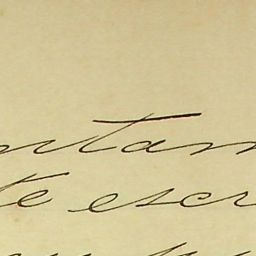 ntam
te escr